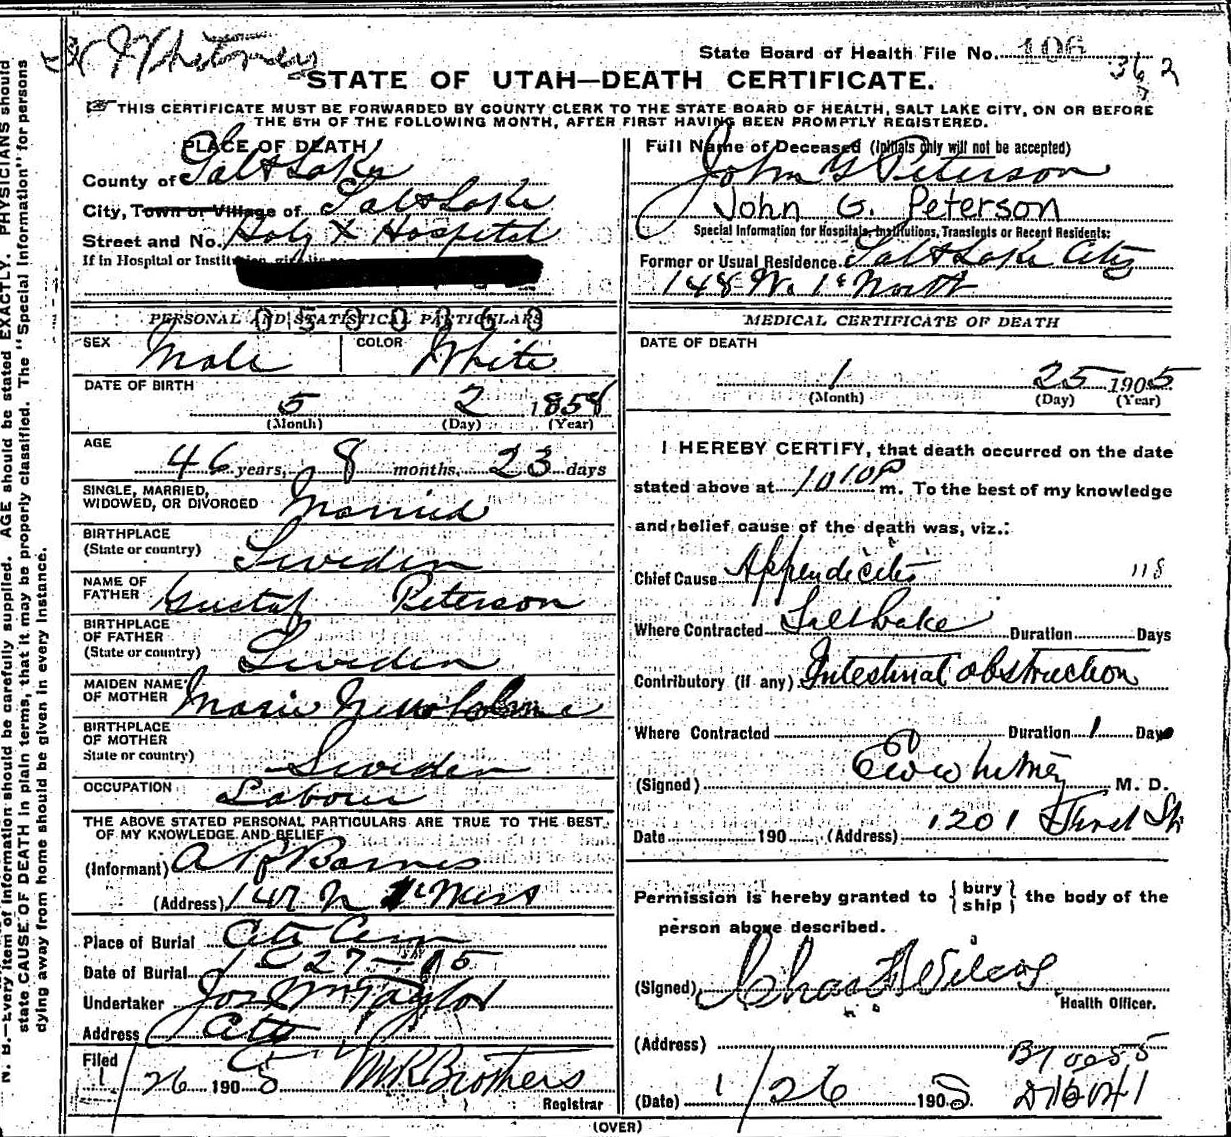 State Board of Health File No. 106
362
STATE OF UTAH—DEATH CERTIFICATE.
THIS CERTIFICATE MUST BE FORWARDED BY COUNTY CLERK TO THE STATE BOARD OF HEALTH, SALT LAKE CITY, ON OR BEFORE
THE 5TH OF THE FOLLOWING MONTH, AFTER FIRST HAVING BEEN PROMPTLY REGISTERED.
N. B.—Every item of information should be carefully supplied. AGE should be stated EXACTLY. PHYSICIANS should
state CAUSE OF DEATH in plain terms, that it may be properly classified. The "Special Information" for persons
dying away from home should be given in every instance.
PLACE OF DEATH
County of Salt Lake
City, Town or Village of Salt Lake
Street and No. Holy X Hospital
If in Hospital or
PERSONAL AND STATISTICAL PARTICULARS
SEX Male COLOR White
DATE OF BIRTH
5 2 1858
(Month) (Day) (Year)
AGE
46 years, 8 months, 23 days
SINGLE, MARRIED,
WIDOWED, OR DIVORCED Married
BIRTHPLACE
(State or country) Sweden
NAME OF
FATHER Gustaf Peterson
BIRTHPLACE
OF FATHER
(State or country) Sweden
MAIDEN NAME
OF MOTHER Marie
BIRTHPLACE
OF MOTHER
State or country) Sweden
OCCUPATION Labour
THE ABOVE STATED PERSONAL PARTICULARS ARE TRUE TO THE BEST
OF MY KNOWLEDGE AND BELIEF
(Informant) A Barnes
(Address) 147 N West
Place of Burial City Cem
Date of Burial 1 - 27 - 05
Undertaker Jos Wm Taylor
Address City
Filed
1/26 1905 Brothers
Registrar
Full Name of Deceased (Initials only will not be accepted)
John G Peterson
John G. Peterson
Special Information for Hospitals, Institutions, Transients or Recent Residents:
Former or Usual Residence Salt Lake City
148 W. 1st North
MEDICAL CERTIFICATE OF DEATH
DATE OF DEATH
1 25 1905
(Month) (Day) (Year)
I HEREBY CERTIFY, that death occurred on the date
stated above at 10 10 P m. To the best of my knowledge
and belief cause of the death was, viz.:
Chief Cause Appendicitis 118
Where Contracted Salt Lake Duration Days
Contributory (if any) Intestinal obstruction
Where Contracted Duration 1 Days
(Signed) Whitney M. D.
Date 190 (Address) 1201 First St
Permission is hereby granted to {bury ship} the body of the
person above described.
(Signed) Chas Wilcox
Health Officer.
(Address)
(Date) 1/26 1905.
(OVER)